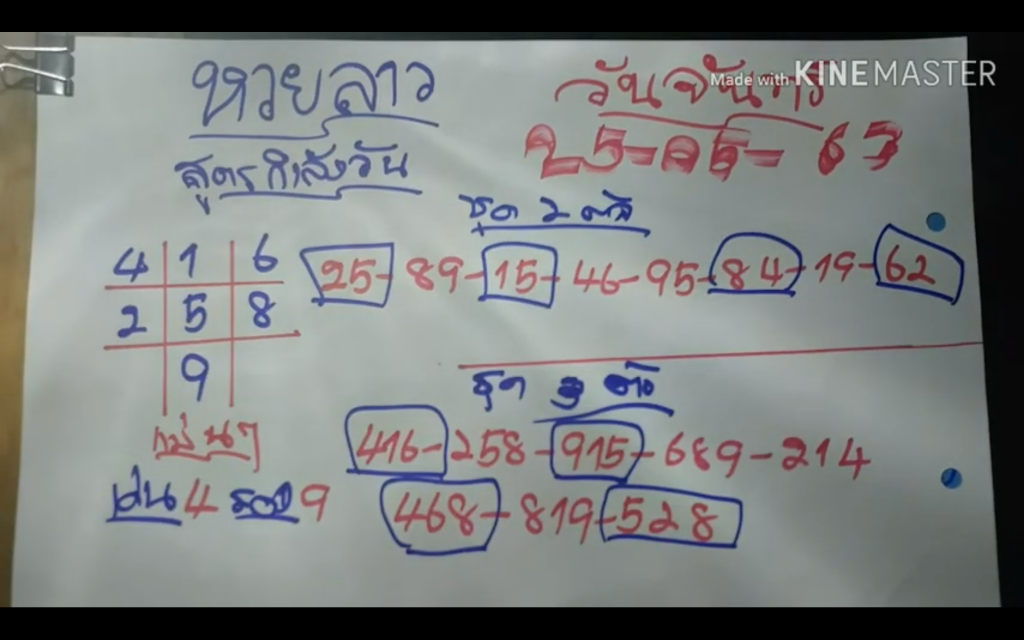 หวยลาว
วันจันทร์
Made with KINEMASTER
25-05-63
สูตรกำลังวัน
ชุด 2 ตัว
4 1 6
25-89-15-46-95-84-19-62
2 5 8
9
ชุด 3 ตัว
แม่นๆ
416-258-915-689-214
เด่น 4 รอง 9
468-819-528